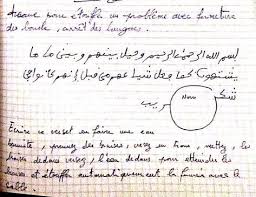 pour étouffer un problème avec fermeture
des bouche, arrêt des langues.
بسم الله الرحمن الرحيم وحيل بينهم وبين ما
يشتهون كما فعل بأشياعهم من قبل إنهم كانوا في
شك
Nom
مريب
Ecrire ce verset en faire une eau
bénite, prenez des braises, versez en trou, mettez, les
braises dedans versez, l'eau dedans pour éteindre les
braises et étouffe automatiquement la fumée avec le
sable.